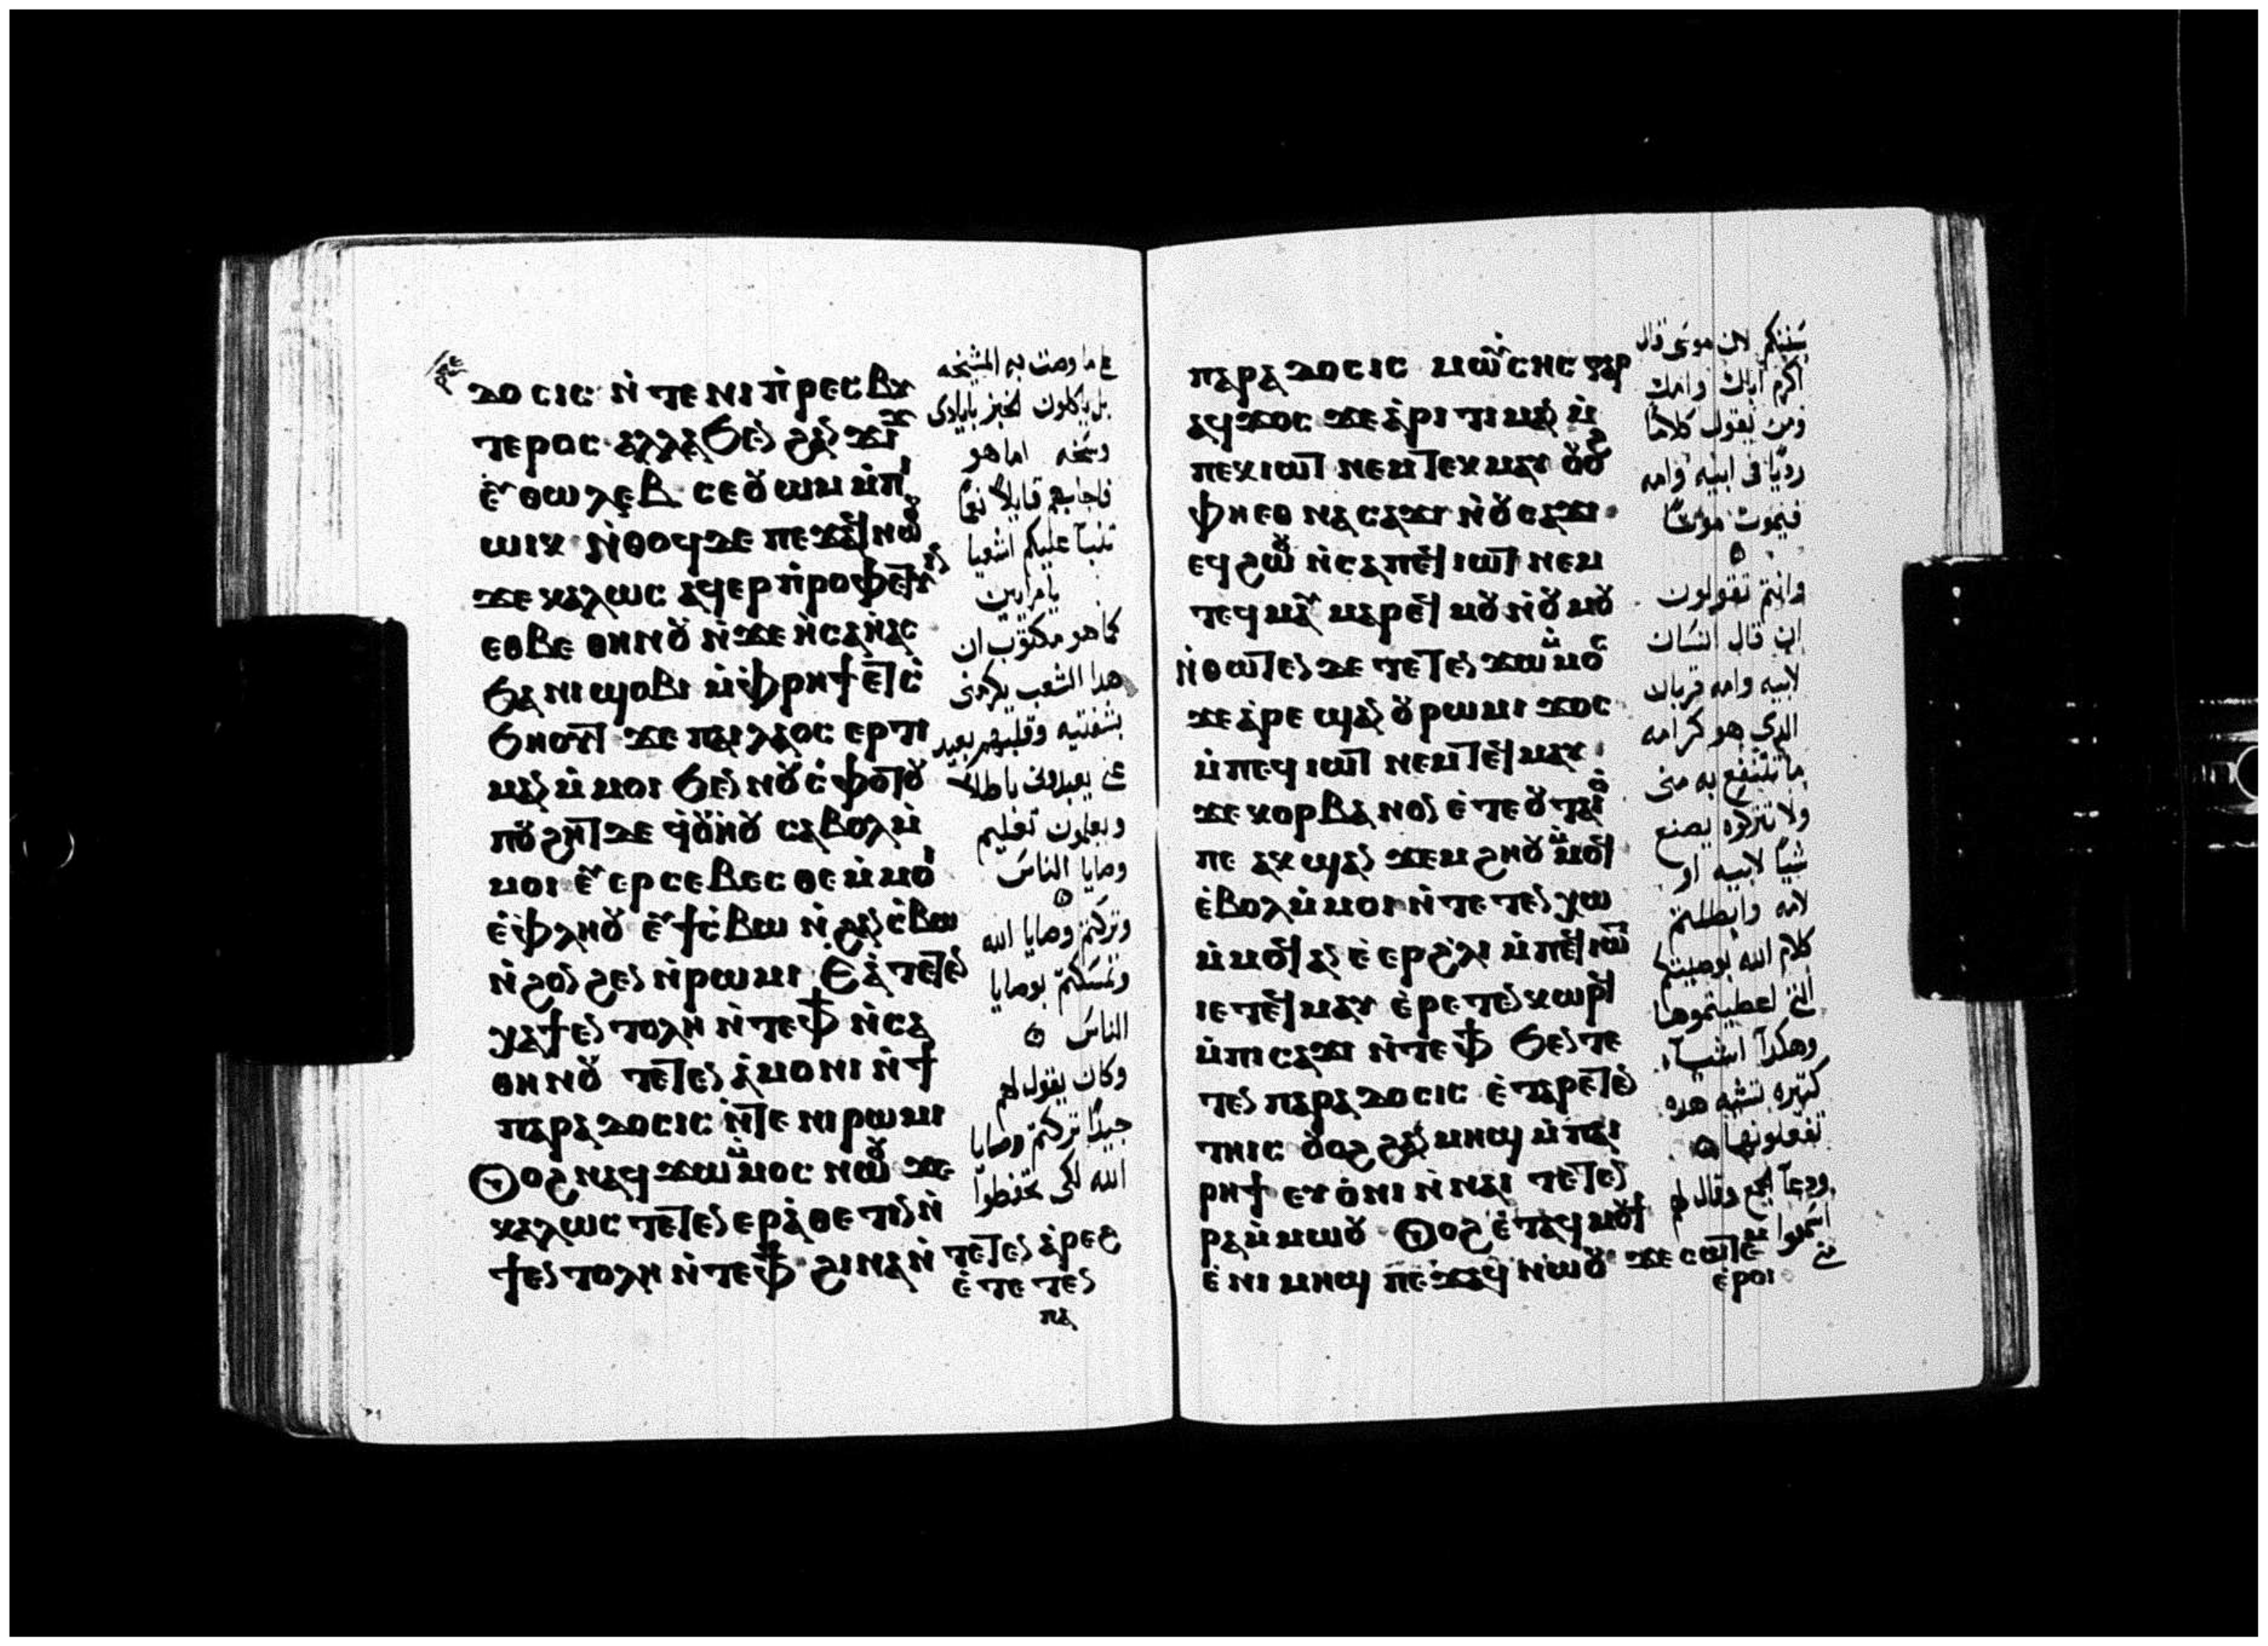 ⲇⲟⲥⲓⲥ ⲛ̀ⲧⲉⲛⲓⲡ̀ⲣⲉⲥⲃⲩ
ⲧⲉⲣⲟⲥ ⲁⲗⲗⲁ ϧⲉⲛ ϩⲁⲛ ϫⲓϫ
ⲉⲩⲑⲱⲗⲉⲃ ⲥⲉⲟⲩⲱⲙ ⲙ̀ⲡⲓ
ⲱⲓⲕ ⲛ̀ⲑⲟϥ ⲇⲉ ⲡⲉϫⲁϥ ⲛⲱⲟⲩ
ϫⲉ ⲕⲁⲗⲱⲥ ⲁϥⲉⲣⲡ̀ⲣⲟⲫⲏⲧⲉⲩⲓⲛ
ⲉⲑⲃⲉ ⲑⲏⲛⲟⲩ ⲛ̀ϫⲉ ⲏ̀ⲥⲁⲏ̀ⲁⲥ
ϧⲁ ⲛⲓϣⲟⲃⲓ ⲙ̀ⲫ̀ⲣⲏϯ ⲉⲧⲥ̀
ϧⲏⲟⲩⲧ ϫⲉ ⲡⲁⲓⲗⲁⲟⲥ ⲉⲣⲧⲓ
ⲙⲁⲛ ⲙ̀ⲙⲟⲓ ϧⲉⲛ ⲛⲟⲩⲥ̀ⲫⲟⲧⲟⲩ
ⲡⲟⲩϩⲏⲧ ⲇⲉ ϥ̀ⲟⲩⲏⲟⲩ ⲥⲁⲃⲟⲗ ⲙ̀
ⲙⲟⲓ ⲉⲩⲉⲣⲥⲉⲃⲉⲥⲑⲉ ⲙ̀ⲙⲟⲓ
ⲉ̀ⲫ̀ⲗⲏⲟⲩ ⲉⲩϯⲥ̀ⲃⲱ ⲛ̀ϩⲁⲛⲥ̀ⲃⲱ
ⲛ̀ϩⲟⲛϩⲉⲛ ⲛ̀ⲣⲱⲙⲓ ⲉⲁ̀ⲧⲉⲧⲉⲛ
ⲭⲁ ϯⲉⲛⲧⲟⲗⲏ ⲛ̀ⲧⲉ ⲫϯ ⲛ̀ⲥⲁ
ⲑⲏⲛⲟⲩ ⲧⲉⲧⲉⲛⲁ̀ⲙⲟⲛⲓ ⲛ̀ϯ
ⲡⲁⲣⲁⲇⲟⲥⲓⲥ ⲛ̀ⲧⲉ ⲛⲓⲣⲱⲙⲓ
ⲟⲩⲟϩ ⲛⲁϥϫⲱ ⲙ̀ⲙⲟⲥ ⲛⲱⲟⲩ ϫⲉ
ⲕⲁⲗⲱⲥ ⲧⲉⲧⲉⲛⲉⲣⲁ̀ⲑⲉⲧⲓⲛ ⲛ̀
ϯⲉⲛⲧⲟⲗⲏ ⲛ̀ⲧⲉ ⲫϯ ϩⲓⲛⲁ ⲛ̀ⲧⲉⲧⲉⲛⲁ̀ⲣⲉϩ
ⲉ̀ⲧⲉⲧⲉⲛ
ⲡⲁ
على ما وصت به المشيخه
بل ياكلون الخبز بايادى
وسخه اما هو
فاجابهم قايلاً نعما
تنبا عليكم اشعيا
يا مرايين
كما هو مكتوب ان
هدا الشعب يكرمنى
بشفتيه وقلبهم بعيد
عنى يعبدونى باطلاً
ويعلمون تعليم
وصايا الناس
وتركتم وصايا الله
وتمسكتم بوصايا
الناس
وكان يقول لهم
جيداً تركتم وصايا
الله لكى تحفظوا
ⲡⲁⲣⲁⲇⲟⲥⲓⲥ ⲙⲱⲩ̀ⲥⲏⲥ ⲅⲁⲣ
ⲁϥϫⲟⲥ ϫⲉ ⲁ̀ⲣⲓⲧⲓⲙⲁⲛ ⲙ̀
ⲡⲉⲕⲓⲱⲧ ⲛⲉⲙ ⲧⲉⲕⲙⲁⲩ ⲟⲩⲟϩ
ⲫⲏⲉⲑⲛⲁⲥⲁϫⲓ ⲛ̀ⲟⲩⲥⲁϫⲓ
ⲉϥϩⲱⲟⲩ ⲛ̀ⲥⲁ ⲡⲉϥⲓⲱⲧ ⲛⲉⲙ
ⲧⲉϥⲙⲁⲩ ⲙⲁⲣⲉϥⲙⲟⲩ ⲛ̀ⲟⲩⲙⲟⲩ
ⲛ̀ⲑⲱⲧⲉⲛ ⲇⲉ ⲧⲉⲧⲉⲛϫⲱ ⲙ̀ⲙⲟⲥ
ϫⲉ ⲁ̀ⲣⲉϣⲁⲛ ⲟⲩⲣⲱⲙⲓ ϫⲟⲥ
ⲙ̀ⲡⲉϥⲓⲱⲧ ⲛⲉⲙ ⲧⲉϥⲙⲁⲩ
ϫⲉ ⲕⲟⲣⲃⲁⲛⲟⲛ ⲉ̀ⲧⲉ ⲟⲩⲧⲁⲓⲟ̀
ⲡⲉ ⲁⲕϣⲁⲛϫⲉⲙϩⲏⲟⲩ ⲙ̀ⲙⲟϥ
ⲉ̀ⲃⲟⲗ ⲙ̀ⲙⲟⲓ ⲛ̀ⲧⲉⲧⲉⲛⲭⲱ
ⲙ̀ⲙⲟϥ ⲁⲛ ⲉ̀ⲉⲣϩ̀ⲗⲓ ⲙ̀ⲡⲉϥⲓⲱⲧ
ⲓⲉ ⲧⲉϥⲙⲁⲩ ⲉ̀ⲣⲉⲧⲉⲛⲕⲱⲣϥ
ⲙ̀ⲡⲓⲥⲁϫⲓ ⲛ̀ⲧⲉ ⲫϯ ϧⲉⲛ ⲧⲉ
ⲧⲉⲛⲡⲁⲣⲁⲇⲟⲥⲓⲥ ⲉ̀ⲧⲁⲣⲉⲧⲉⲛ
ⲧⲏⲓⲥ ⲟⲩⲟϩ ϩⲁⲛⲙⲏϣ ⲙ̀ⲡⲁⲓ
ⲣⲏϯ ⲉⲩⲟ̀ⲛⲓ ⲛ̀ⲛⲁⲓ ⲧⲉⲧⲉⲛ
ⲣⲁ ⲙ̀ⲙⲱⲟⲩ ⲟⲩⲟϩ ⲉ̀ⲧⲁϥⲙⲟⲩϯ
ⲉ̀ⲛⲓⲙⲏϣ ⲡⲉϫⲁϥ ⲛⲱⲟⲩ ϫⲉ ⲥⲱⲧⲉⲙ
ⲉ̀ⲣⲟⲓ
سننكم لان موسى قال
اكرم اباك وامك
ومن يقول كلاما
رديا فى ابيه وامه
فيموت موتاً
وانتم تقولون
ان قال انسان
لابيه وامه قربان
الدى هو كرامه
ما تنتفع به منى
ولا تتركوه يصنع
شياً لابيه او
لامه وابطلتم
كلام الله بوصيتكم
التى اعطيتموها
وهكدا اشيا
كثيره تشبه هده
تفعلونها
ودعا الجمع وقال لهم
اسمعوا
منى